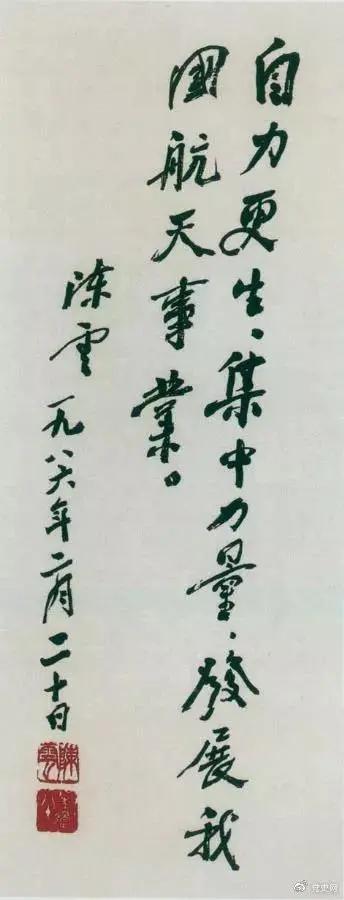 自力更生、集中力量、發展我
國航天事業。
陳雲 一九八六年二月二十日
陳雲
党史网